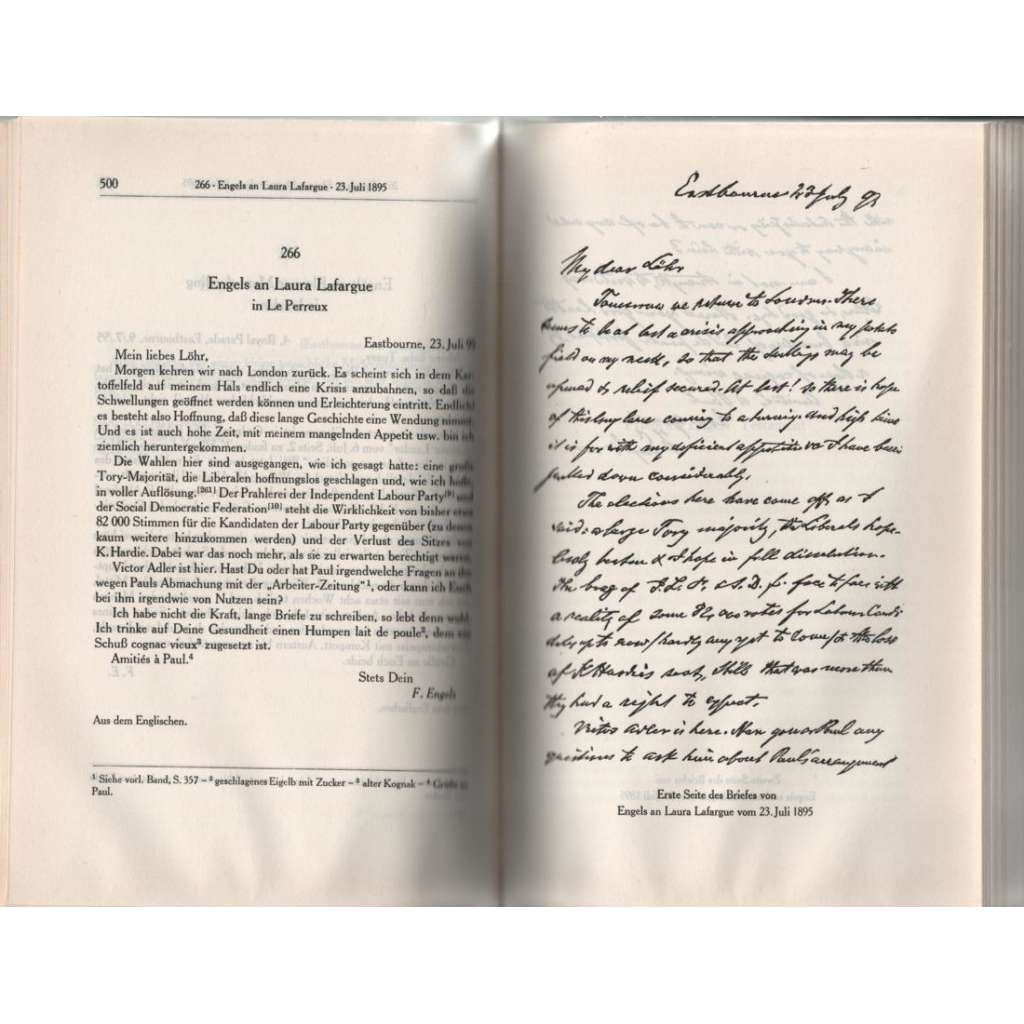 500
266 · Engels an Laura Lafargue · 23. Juli 1895
266
Engels an Laura Lafargue
in Le Perreux
Eastbourne, 23. Juli 9
Mein liebes Löhr,
Morgen kehren wir nach London zurück. Es scheint sich in dem Kar
toffelfeld auf meinem Hals endlich eine Krisis anzubahnen, so daß die
Schwellungen geöffnet werden können und Erleichterung eintritt. Endlich
es besteht also Hoffnung, daß diese lange Geschichte eine Wendung nimmt.
Und es ist auch hohe Zeit, mit meinem mangelnden Appetit usw. bin ich
ziemlich heruntergekommen.
Die Wahlen hier sind ausgegangen, wie ich gesagt hatte: eine große
Tory-Majorität, die Liberalen hoffnungslos geschlagen und, wie ich hoffe,
in voller Auflösung.[261] Der Prahlerei der Independent Labour Party[9] und
der Social Democratic Federation[10] steht die Wirklichkeit von bisher etwa
82 000 Stimmen für die Kandidaten der Labour Party gegenüber (zu denen
kaum weitere hinzukommen werden) und der Verlust des Sitzes von
K. Hardie. Dabei war das noch mehr, als sie zu erwarten berechtigt waren.
Victor Adler ist hier. Hast Du oder hat Paul irgendwelche Fragen an ihn
wegen Pauls Abmachung mit der „Arbeiter-Zeitung"¹, oder kann ich Euch
bei ihm irgendwie von Nutzen sein?
Ich habe nicht die Kraft, lange Briefe zu schreiben, so lebt denn wohl.
Ich trinke auf Deine Gesundheit einen Humpen lait de poule², dem ein
Schuß cognac vieux³ zugesetzt ist.
Amitiés à Paul.⁴
Stets Dein
F. Engels
Aus dem Englischen.
¹ Siehe vorl. Band, S. 357 – ² geschlagenes Eigelb mit Zucker – ³ alter Kognak – ⁴ Grüße an
Paul.
Eastbourne 23 July 95
My dear Löhr
Tomorrow we return to London. There
seems to be at last a crisis approaching in my potato
field on my neck, so that the swellings may be
opened & relief secured. At last! so there is hope
of this long lane coming to a turning. And high time
it is for with my deficient appetite &c I have been
pulled down considerably.
The elections here have come off as I
said: a large Tory majority, the Liberals hope-
lessly beaten & I hope in full dissolution.
The brag of I.L.P. & S.D.F. face to face with
a reality of some votes for Labour Candi
dates up to now (hardly any yet to come) & the loss
of K Hardie's seat, Still that was more than
they had a right to expect.
Victor Adler is here. Have you or Paul any
questions to ask him about Paul's arrangement
Erste Seite des Briefes von
Engels an Laura Lafargue vom 23. Juli 1895